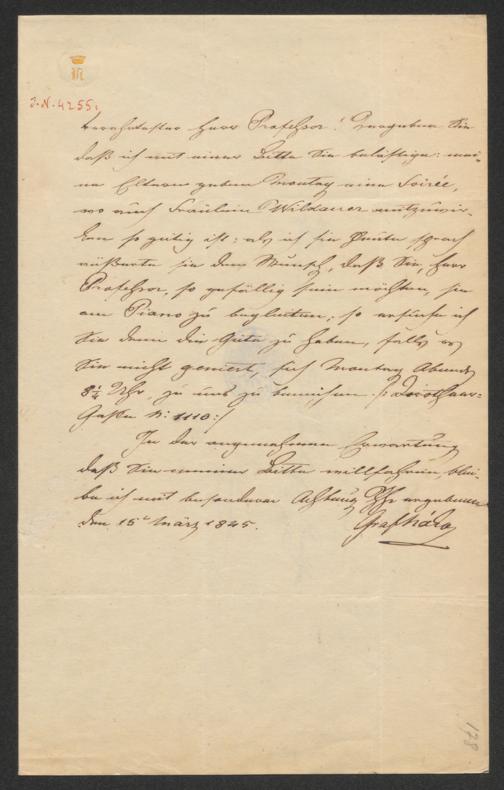 I. N. 4255i
Verehrtester Herr Professor! Vergeben Sie
daß ich mit einer Bitte Sie belästige: mei-
ne Eltern geben Montag eine Soirée,
wo auch Fräulein Wildauer mitzuwir-
ken so gütig ist; als ich sie heute sprach
äußerte sie den Wunsch, daß Sie, Herr
Professor, so gefällig sein möchten, sie
am Piano zu begleiten; so ersuche ich
Sie denn die Güte zu haben, falls es
Sie nicht geniert, sich Montag Abends
8½ Uhr, zu uns zu bemühen /: Dorotheer-
Gasse N: 1110 :/
In der angenehmen Erwartung
daß Sie meiner Bitte willfahren, blei-
be ich mit besonderer Achtung Ihr ergebener
den 15t März 1845.
Graf
178